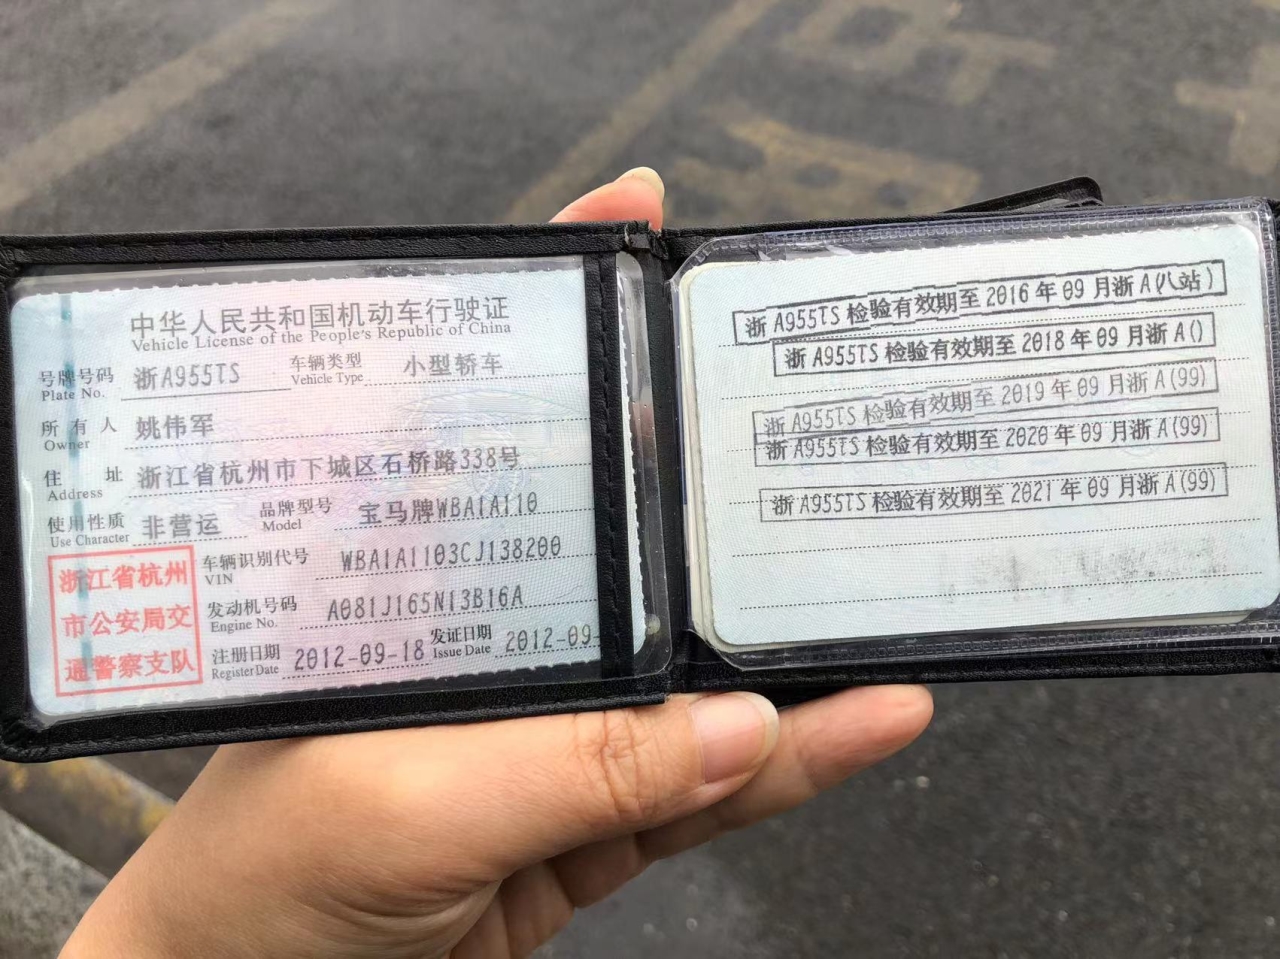 中华人民共和国机动车行驶证
Vehicle License of the People's Republic of China
号牌号码 浙A955TS 车辆类型 小型轿车
Plate No. Vehicle Type
所有人 姚伟军
Owner
住址 浙江省杭州市下城区石桥路338号
Address
使用性质 非营运 品牌型号 宝马牌WBA1A110
Use Character Model
车辆识别代号 WBA1A1103CJ138200
VIN
发动机号码 A081J165N13B16A
Engine No.
注册日期 2012-09-18 发证日期 2012-09-
Register Date Issue Date
浙江省杭州
市公安局交
通警察支队
浙A955TS检验有效期至2016年09月浙A(八站)
浙A955TS检验有效期至2018年09月浙A()
浙A955TS检验有效期至2019年09月浙A(99)
浙A955TS检验有效期至2020年09月浙A(99)
浙A955TS检验有效期至2021年09月浙A(99)